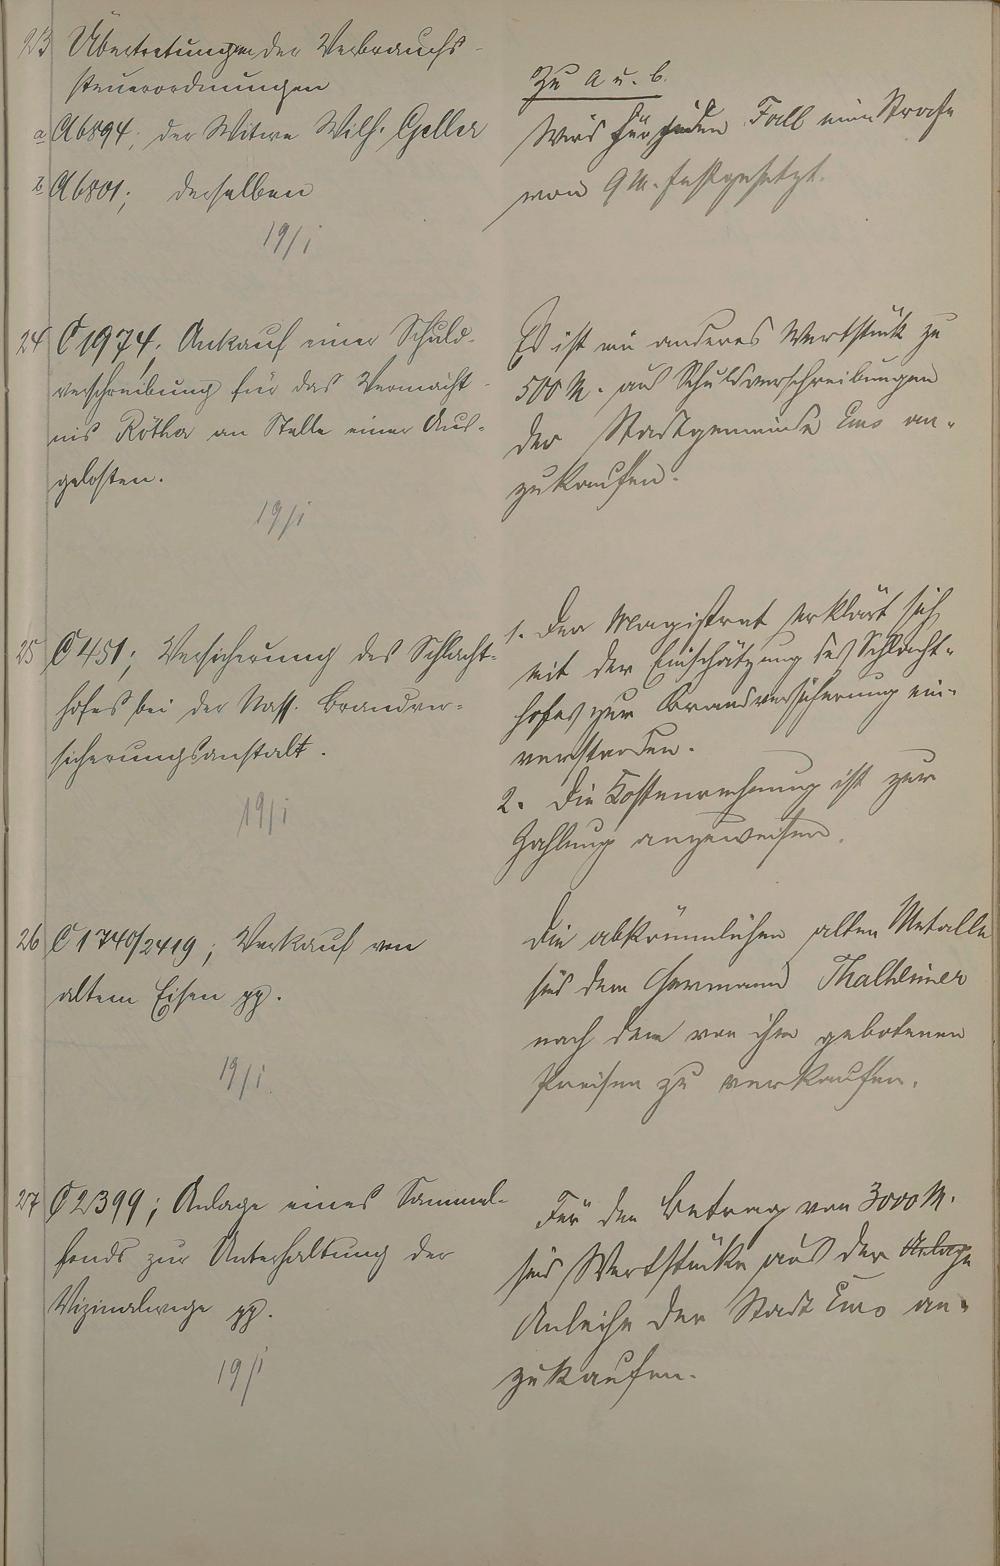 23 Übertretungen der Verbrauchs-
steuerordnungen
a A6894; der Witwe Wilh. Geller
b A6801; derselben
19/I
Zu a u. b.
Wird für jeden Fall eine Strafe
von 9 M. festgesetzt.
24 C1974; Ankauf einer Schuld-
verschreibung für das Vermächt-
nis Rötha an Stelle einer Aus-
gelosten.
19/I
Es ist ein anderes Wertstück zu
500 M. aus Schuldverschreibungen
der Stadtgemeinde Ems an-
zukaufen.
25 C451; Versicherung des Schlacht-
hofes bei der Nass. Brandver-
sicherungsanstalt.
19/I
1. Der Magistrat erklärt sich
mit der Einschätzung des Schlacht-
hofes zur Brandversicherung ein-
verstanden.
2. Die Kostenrechnung ist zur
Zahlung anzuweisen.
26 C1740/2419; Verkauf von
altem Eisen pp.
19/I
Die abkömmlichen alten Metalle
sind dem Hermann Thalheimer
nach den von ihm gebotenen
Preisen zu verkaufen.
27 C2399; Anlage eines Sammel-
fonds zur Unterhaltung der
Vizinalwege pp.
19/I
Für den Betrag von 3000 M.
sind Wertstücke aus der Anlage
Anleihe der Stadt Ems an-
zukaufen.